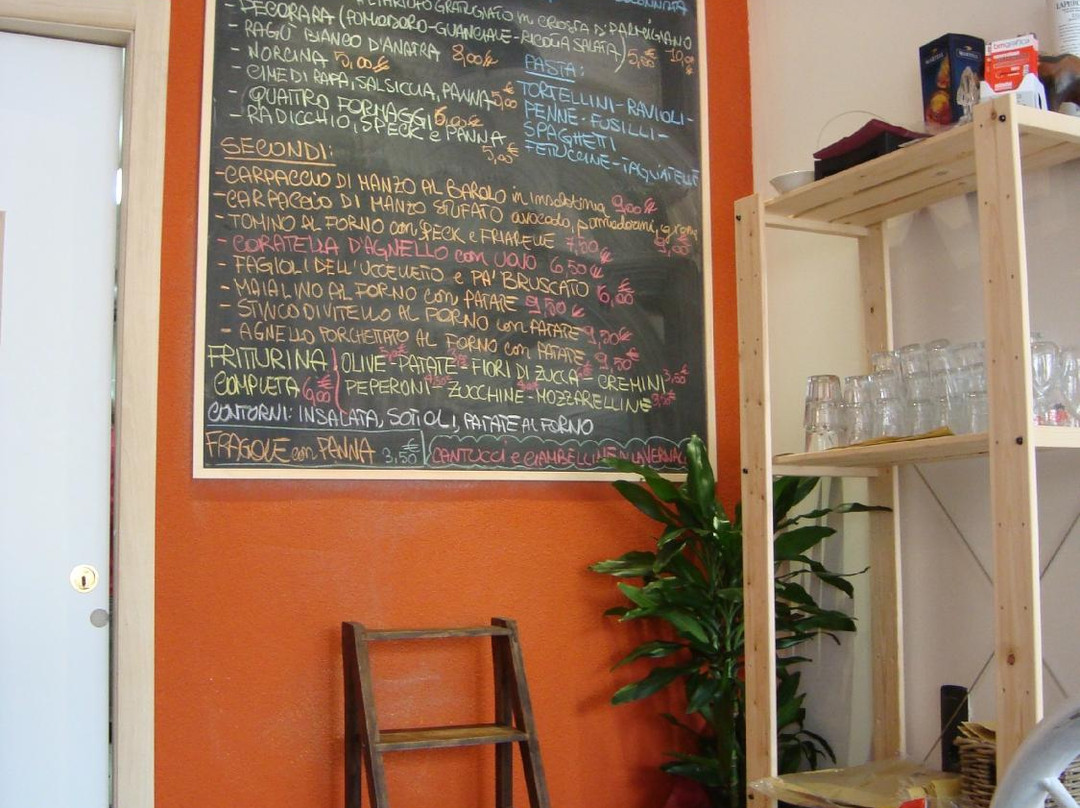 GRATUGIATO in CROSTA D'PARMIGIANO
- PECORARA (POMODORO-GUANCIALE-RICOTTA SALATA) 5,00 10,00
- RAGÙ BIANCO D'ANATRA 8,00€
- NORCINA 5,00€
- CIME DI RAPA, SALSICCIA, PANNA 5,00€
- QUATTRO FORMAGGI 6,00€
- RADICCHIO, SPECK e PANNA 5,00€
PASTA:
TORTELLINI-RAVIOLI-
PENNE-FUSILLI-
SPAGHETTI
FETUCCINE-TAGLIATELLE
SECONDI:
-CARPACCIO DI MANZO AL BAROLO in insalatina 9,00€
-CARPACCIO DI MANZO STUFATO avocado, pomodorini, e rana 9,00€
-TOMINO AL FORNO con SPECK e FRIARELLE 7,50€
- CORATELLA D'AGNELLO con UOVO 6,50€
- FAGIOLI DELL'UCCELLETTO e PA' BRUSCATO 6,00€
- MAIALINO AL FORNO con PATATE 9,50€
- STINCO DI VITELLO AL FORNO con PATATE 9,50€
- AGNELLO PORCHETTATO AL FORNO con PATATE 9,50€
FRITTURINA OLIVE-PATATE-FIORI DI ZUCCA-CREMINI 3,50
COMPLETA 6,00€ PEPERONI-ZUCCHINE-MOZZARELLINE
CONTORNI: INSALATA, SOTTOLI, PATATE AL FORNO
FRAGOLE con PANNA 3,50€ CANTUCCI e CIAMBELLINE